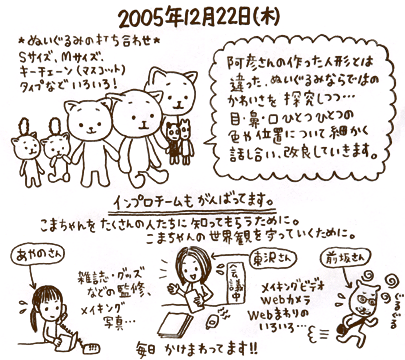 2005年12月22日(木)
*ぬいぐるみの打ち合わせ*
Sサイズ、Mサイズ、
キーチェーン(マスコット)
タイプなど いろいろ!
阿彦さんの作った人形とは
違った、ぬいぐるみならではの
かわいさを 探究しつつ…
目・鼻・口 ひとつひとつの
色や位置について細かく
話し合い、改良していきます。
インプロチームも がんばってます。
こまちゃんを たくさんの人たちに 知ってもらうために。
こまちゃんの 世界観を守っていくために。
あやのさん
雑誌・グッズ
などの監修、
メイキング
写真…
東沢さん
会議中
前坂さん
メイキングビデオ
Webカメラ
Webまわりの
いろいろ…
毎日 かけまわってます!!